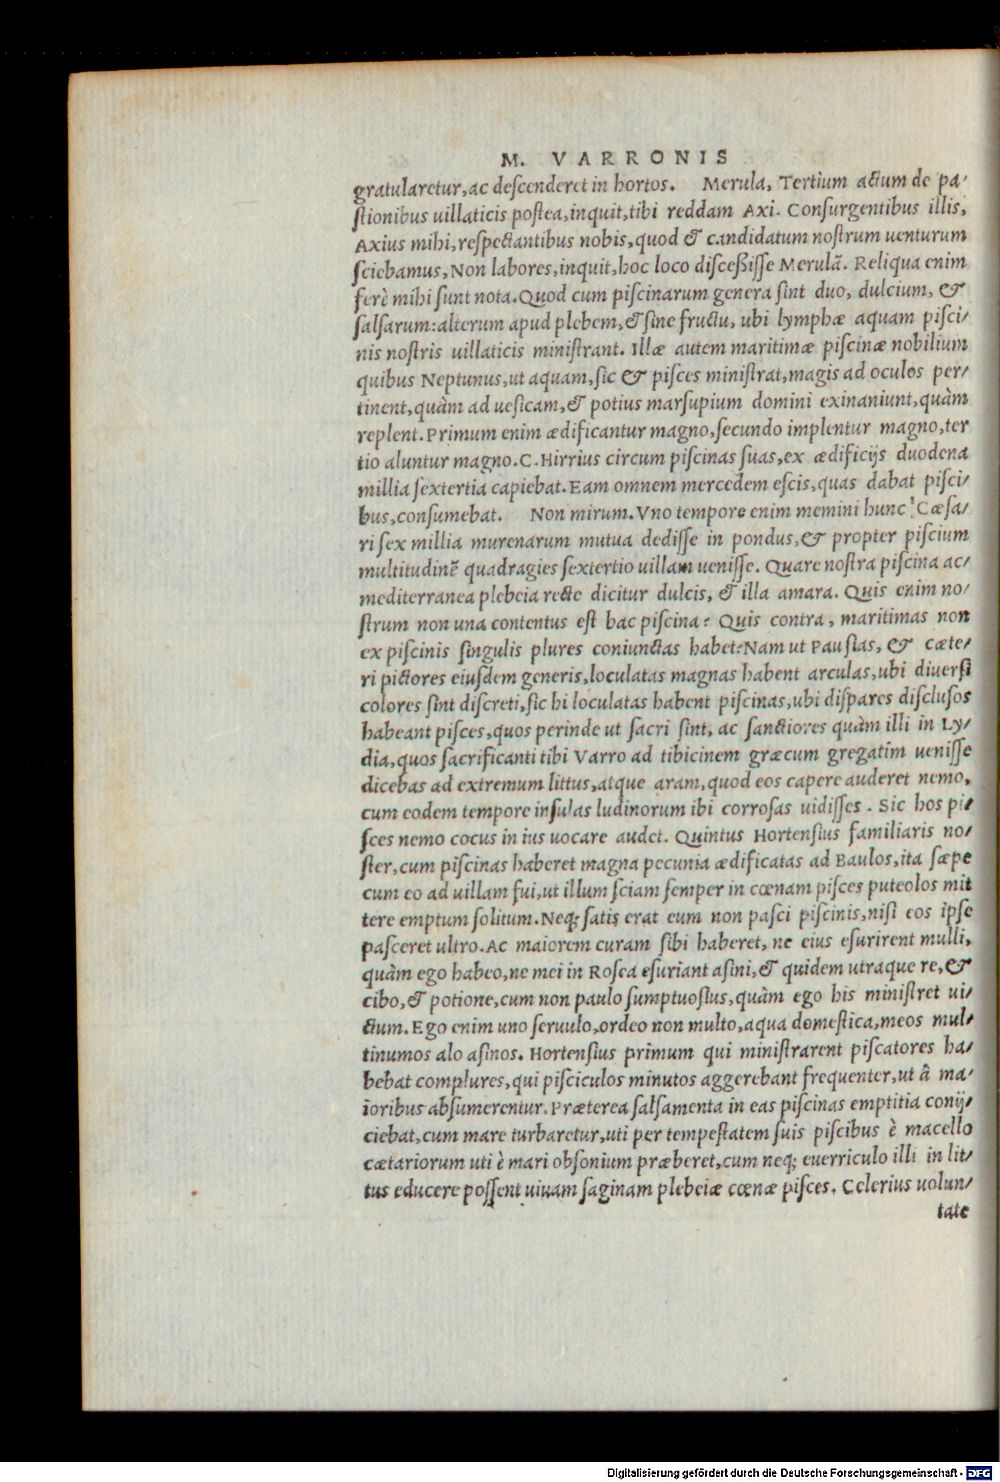 M. VARRONIS
gratularetur, ac descenderet in hortos. Merula, Tertium actum de pa/
stionibus uillaticis postea, inquit, tibi reddam Axi. Consurgentibus illis,
Axius mihi, respectantibus nobis, quod & candidatum nostrum uenturum
sciebamus, Non labores, inquit, hoc loco discessisse Merulã. Reliqua enim
ferè mihi sunt nota. Quod cum piscinarum genera sint duo, dulcium, &
salsarum: alterum apud plebem, & sine fructu, ubi lymphæ aquam pisci/
nis nostris uillaticis ministrant. Illæ autem maritimæ piscinæ nobilium
quibus Neptunus, ut aquam, sic & pisces ministrat, magis ad oculos per/
tinent, quàm ad uesicam, & potius marsupium domini exinaniunt, quàm
replent. Primum enim ædificantur magno, secundo implentur magno, ter
tio aluntur magno. C. Hirrius circum piscinas suas, ex ædificijs duodena
millia sextertia capiebat. Eam omnem mercedem escis, quas dabat pisci/
bus, consumebat. Non mirum. Vno tempore enim memini hunc Cæsa/
ri sex millia murenarum mutua dedisse in pondus, & propter piscium
multitudinẽ quadragies sextertio uillam uenisse. Quare nostra piscina ac/
mediterranea plebeia recte dicitur dulcis, & illa amara. Quis enim no/
strum non una contentus est hac piscina? Quis contra, maritimas non
ex piscinis singulis plures coniunctas habet? Nam ut Pausias, & cæte/
ri pictores eiusdem generis, loculatas magnas habent arculas, ubi diuersi
colores sint discreti, sic hi loculatas habent piscinas, ubi dispares disclusos
habeant pisces, quos perinde ut sacri sint, ac sanctiores quàm illi in Ly/
dia, quos sacrificanti tibi Varro ad tibicinem græcum gregatim uenisse
dicebas ad extremum littus, atque aram, quod eos capere auderet nemo,
cum eodem tempore insulas ludinorum ibi corrosas uidisses. Sic hos pi/
sces nemo cocus in ius uocare audet. Quintus Hortensius familiaris no/
ster, cum piscinas haberet magna pecunia ædificatas ad Baulos, ita sæpe
cum eo ad uillam fui, ut illum sciam semper in cœnam pisces puteolos mit
tere emptum solitum. Neq; satis erat eum non pasci piscinis, nisi eos ipse
pasceret ultro. Ac maiorem curam sibi haberet, ne eius esurirent mulli,
quàm ego habeo, ne mei in Rosea esuriant asini, & quidem utraque re, &
cibo, & potione, cum non paulo sumptuosius, quàm ego his ministret ui/
ctum. Ego enim uno seruulo, ordeo non multo, aqua domestica, meos mul/
tinumos alo asinos. Hortensius primum qui ministrarent piscatores ha/
bebat complures, qui pisciculos minutos aggerebant frequenter, ut â ma/
ioribus absumerentur. Præterea salsamenta in eas piscinas emptitia conij/
ciebat, cum mare turbaretur, uti per tempestatem suis piscibus è macello
cætariorum uti è mari obsonium præberet, cum neq; euerriculo illi in lit/
tus educere possent uiuam saginam plebeiæ cœnæ pisces. Celerius uolun/
tate
Digitalisierung gefördert durch die Deutsche Forschungsgemeinschaft - DFG